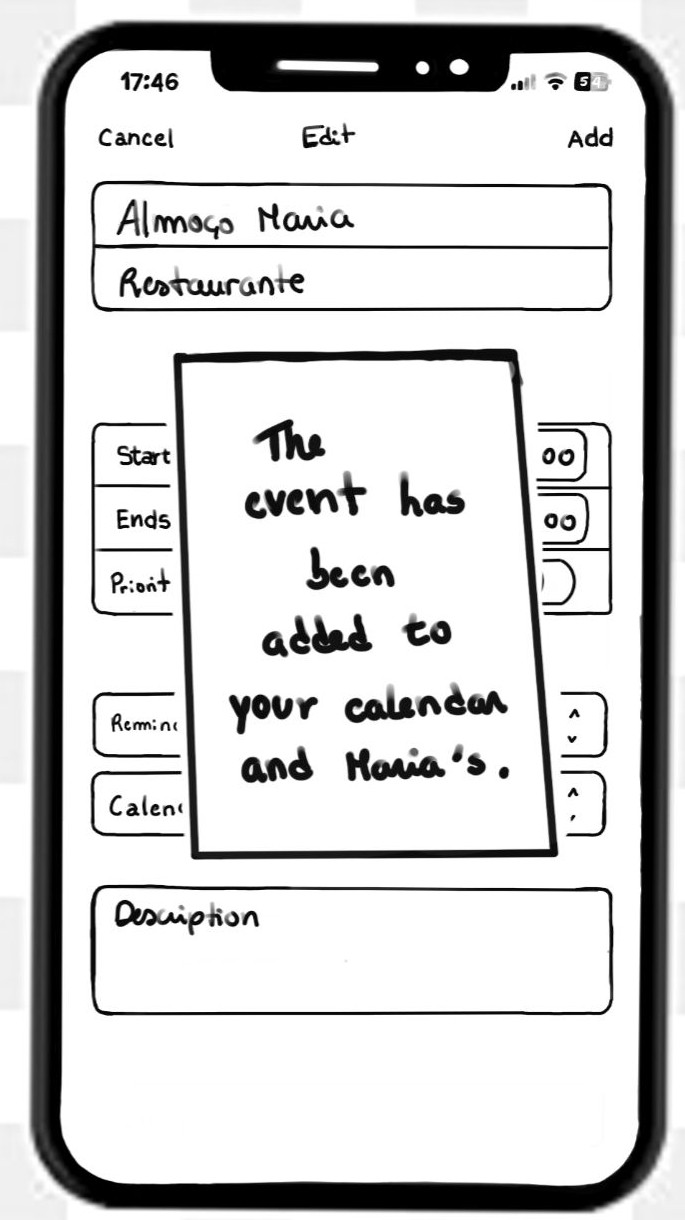 17:46
54
Cancel Edit Add
Almoço Maria
Restaurante
Start 00
Ends 00
Priorit
The
event has
been
added to
your calendar
and Maria's.
Remind
Calen
Description